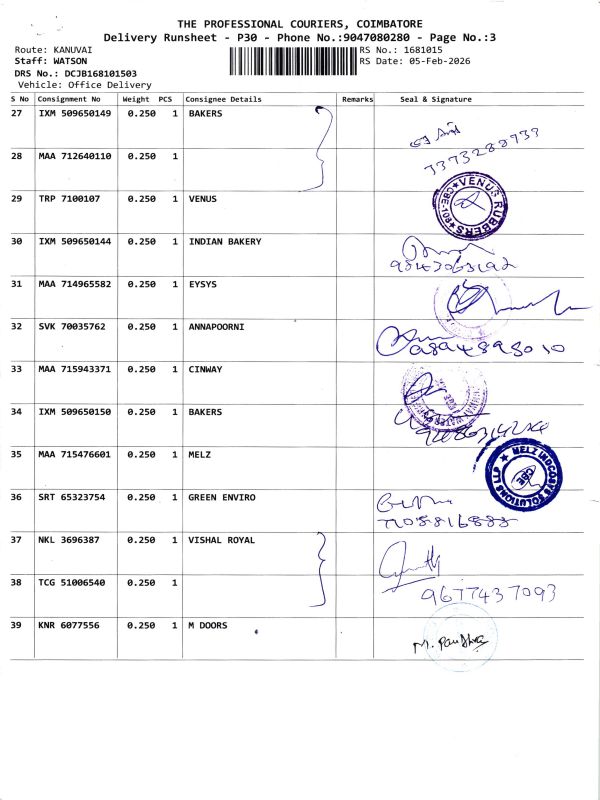 THE PROFESSIONAL COURIERS, COIMBATORE
Delivery Runsheet - P30 - Phone No.:9047080280 - Page No.:3
Route: KANUVAI RS No.: 1681015
Staff: WATSON RS Date: 05-Feb-2026
DRS No.: DCJB168101503
Vehicle: Office Delivery
S No Consignment No Weight PCS Consignee Details Remarks Seal & Signature
27 IXM 509650149 0.250 1 BAKERS
28 MAA 712640110 0.250 1
7373288733
29 TRP 7100107 0.250 1 VENUS
VENUS RUBBERS
30 IXM 509650144 0.250 1 INDIAN BAKERY
31 MAA 714965582 0.250 1 EYSYS
32 SVK 70035762 0.250 1 ANNAPOORNI
33 MAA 715943371 0.250 1 CINWAY
34 IXM 509650150 0.250 1 BAKERS
35 MAA 715476601 0.250 1 MELZ
MELZ INDCOSYS SOLUTIONS LLP
CBE
36 SRT 65323754 0.250 1 GREEN ENVIRO
37 NKL 3696387 0.250 1 VISHAL ROYAL
38 TCG 51006540 0.250 1
9677437093
39 KNR 6077556 0.250 1 M DOORS